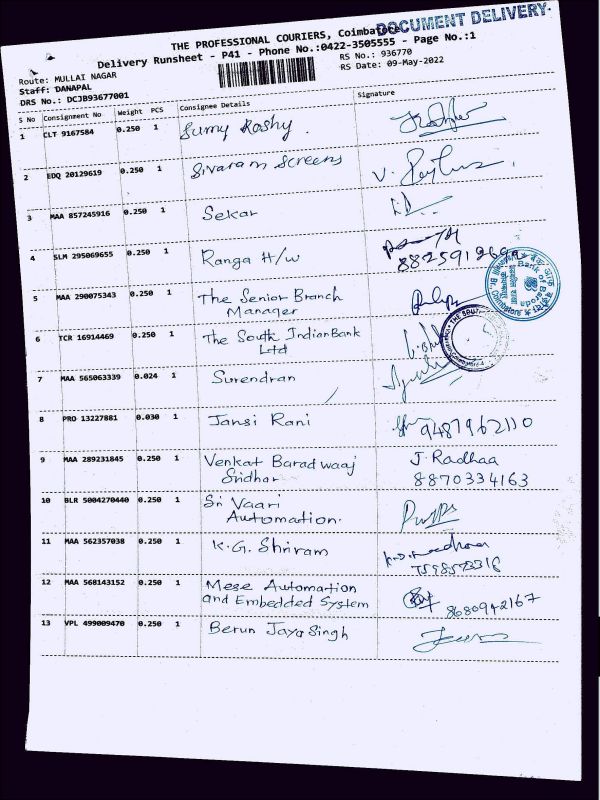 DOCUMENT DELIVERY.
THE PROFESSIONAL COURIERS, Coimbatore
Delivery Runsheet - P41 - Phone No.:0422-3505555 - Page No.:1
Route: MULLAI NAGAR
RS No.: 936770
Staff: DANAPAL
RS Date: 09-May-2022
DRS No.: DCJB93677001
S No Consignment No Weight PCS Consignee Details Signature
1 CLT 9167584 0.250 1 Sumy Rashy.
2 EDQ 20129619 0.250 1 Sivaram Screens
3 MAA 857245916 0.250 1 Sekar
4 SLM 295069655 0.250 1 Ranga H/w
5 MAA 290075343 0.250 1 The Senior Branch
Manager
Bank of Baroda
6 TCR 16914469 0.250 1 The South Indian Bank
Ltd
7 MAA 565063339 0.024 1 Surendran
8 PRO 13227881 0.030 1 Jansi Rani 9487962110
9 MAA 289231845 0.250 1 Venkat Baradwaaj J. Radhaa
Sridhar 8870334163
10 BLR 5004270440 0.250 1 Sri Vaari
Automation.
11 MAA 562357038 0.250 1 K.G. Shriram
12 MAA 568143152 0.250 1 Mese Automation
and Embedded System 8680942167
13 VPL 499009470 0.250 1 Berun Jaya Singh